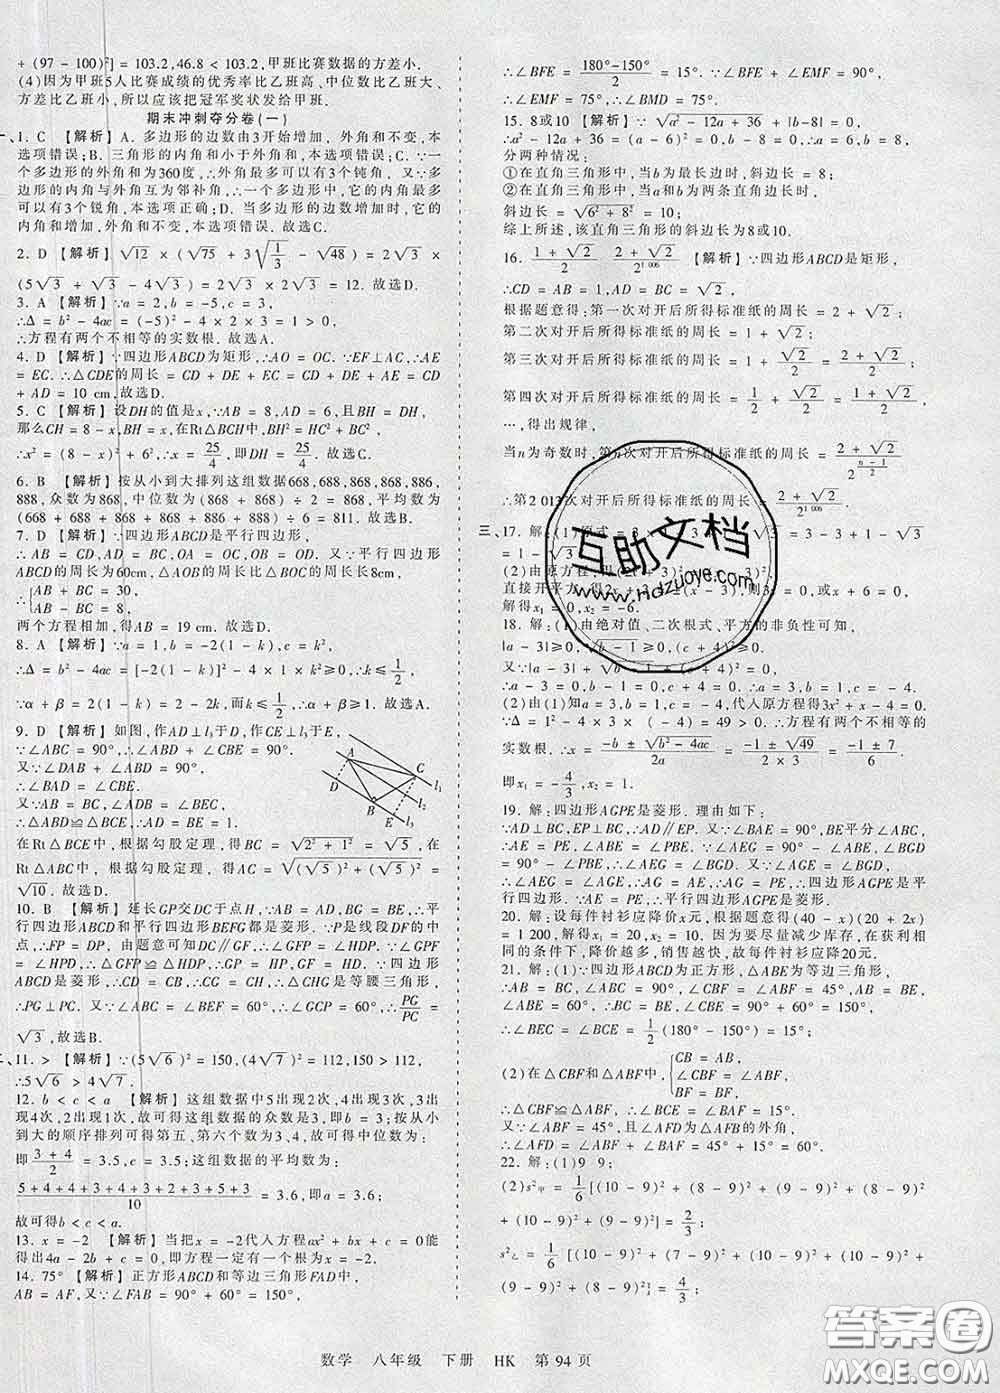 + (97 - 100)²] = 103.2, 46.8 < 103.2, 甲班比赛数据的方差小.
(4)因为甲班5人比赛成绩的优秀率比乙班高、中位数比乙班大、
方差比乙班小,所以应该把冠军奖状发给甲班.
期末冲刺夺分卷(一)
一 1. C 【解析】A. 多边形的边数由3开始增加, 外角和不变, 本
选项错误; B. 三角形的内角和小于外角和, 本选项错误; C. ∵一
个多边形的外角和为360度, ∴外角最多可以有3个钝角, 又∵多
边形的内角与外角互为邻补角, ∴一个多边形中, 它的内角最多
可以有3个锐角, 本选项正确; D. 当多边形的边数增加时, 它的
内角和增加, 外角和不变, 本选项错误. 故选C.
2. D 【解析】√12 × (√75 + 3√(1/3) - √48) = 2√3 ×
(5√3 + √3 - 4√3) = 2√3 × 2√3 = 12. 故选D.
3. A 【解析】∵a = 2, b = -5, c = 3,
∴Δ = b² - 4ac = (-5)² - 4 × 2 × 3 = 1 > 0,
∴方程有两个不相等的实数根. 故选A.
4. D 【解析】∵四边形ABCD为矩形, ∴AO = OC. ∵EF⊥AC, ∴AE
= EC. ∴△CDE的周长 = CD + DE + EC = CD + DE + AE = CD +
AD = 10 cm, 故选D.
5. C 【解析】设DH的值是x, ∵AB = 8, AD = 6, 且BH = DH,
那么CH = 8 - x, BH = x, 在Rt△BCH中, BH² = HC² + BC²,
∴x² = (8 - x)² + 6², ∴x = 25/4, 即DH = 25/4. 故选C.
6. B 【解析】按从小到大排列这组数据668, 668, 868, 868, 886,
888, 众数为868, 中位数为(868 + 868) ÷ 2 = 868, 平均数为
(668 + 668 + 868 + 868 + 886 + 888) ÷ 6 = 811. 故选B.
7. D 【解析】∵四边形ABCD是平行四边形,
∴AB = CD, AD = BC, AO = OC. 又∵平行四边形
ABCD的周长为60cm, △AOB的周长比△BOC的周长长8cm,
∴{AB + BC = 30,
AB - BC = 8,
两个方程相加, 得AB = 19 cm. 故选D.
8. A 【解析】∵a = 1, b = -2(1 - k), c = k²,
∴Δ = b² - 4ac = [-2(1 - k)]² - 4 × 1 × k² ≥ 0, ∴k ≤ 1/2,
∵α + β = 2(1 - k) = 2 - 2k, ∴α + β ≥ 1. 故选A.
9. D 【解析】如图, 作AD⊥l₃于D, 作CE⊥l₃于E,
∵∠ABC = 90°, ∴∠ABD + ∠CBE = 90°.
又∵∠DAB + ∠ABD = 90°,
∴∠BAD = ∠CBE.
又∵AB = BC, ∠ADB = ∠BEC,
∴△ABD≌△BCE, ∴AD = BE = 1.
A C D B E l₁ l₂ l₃
在Rt△BCE中, 根据勾股定理, 得BC = √(2² + 1²) = √5, 在
Rt△ABC中, 根据勾股定理, 得AC = √((√5)² + (√5)²) =
√10. 故选D.
10. B 【解析】延长GP交DC于点H, ∵四边形ABCD是菱形, ∴平
行四边形ABCD和平行四边形BEFG都是菱形. ∵P是线段DF的中
点, ∴FP = DP, 由题意可知DC∥GF, ∴∠GFP = ∠HDP. ∵∠GPF
= ∠HPD, ∴△GFP≌△HDP, ∴GP = HP, GF = HD. ∵四边形
ABCD是菱形, ∴CD = CB, ∴CG = CH, ∴△CHG是等腰三角形,
∴PG⊥PC. 又∵∠ABC = ∠BEF = 60°, ∴∠GCP = 60°, ∴PG/PC =
√3, 故选B.
二 11. > 【解析】∵(5√6)² = 150, (4√7)² = 112, 150 > 112,
∴5√6 > 4√7.
12. b < c < a 【解析】这组数据中5出现2次, 4出现3次, 3出
现4次, 2出现1次, 故可得这组数据的众数是3, 即b = 3; 按从小
到大的顺序排列可得第五、第六个数为3、4, 故可得中位数为:
即(3 + 4)/2 = 3.5, 即c = 3.5; 这组数据的平均数为:
(5 + 4 + 4 + 4 + 3 + 2 + 3 + 3 + 5 + 3)/10 = 3.6, 即a = 3.6,
故可得b < c < a.
13. x = -2 【解析】当把x = -2代入方程ax² + bx + c = 0能
得出4a - 2b + c = 0, 即方程一定有一个根为x = -2.
14. 75° 【解析】正方形ABCD和等边三角形FAD中,
AB = AF, 又∵∠FAB = 90° + 60° = 150°,
∴∠BFE = (180° - 150°)/2 = 15°. ∵∠BFE + ∠EMF = 90°,
∴∠EMF = 75°, ∴∠BMD = 75°.
15. 8或10 【解析】∵√(a² - 12a + 36) + |b - 8| = 0,
∴a² - 12a + 36 = 0, b - 8 = 0, ∴a = 6, b = 8;
分两种情况:
①在直角三角形中, 当b为最长边时, 斜边长 = 8;
②在直角三角形中, 当a和b为两条直角边长时,
斜边长 = √(6² + 8²) = 10;
综上所述, 该直角三角形的斜边长为8或10.
16. (1 + √2)/2 (2 + √2)/2^1 006 【解析】∵四边形ABCD是矩形,
∴CD = AB = 1, AD = BC = √2,
根据题意得: 第一次对开后所得标准纸的周长 = 2 + √2,
第二次对开后所得标准纸的周长 = 1 + √2,
第三次对开后所得标准纸的周长 = 1 + √2/2 = (2 + √2)/2,
第四次对开后所得标准纸的周长 = 1/2 + √2/2 = (1 + √2)/2,
…, 得出规律,
当n为奇数时, 第n次对开后所得标准纸的周长 = (2 + √2)/2^((n-1)/2)
∴第2 013次对开后所得标准纸的周长 = (2 + √2)/2^1 006.
三 17. 解: (1)原式 = 3 × √3 = 3 - 3 + 1 - √3
= 1 - √3
(2)由原方程, 得(2x + 3)²
直接开平方, 得2x + 3 = ±(x - 3), 则3x = 0, 或x + 6 = 0,
解得x₁ = 0, x₂ = -6.
18. 解: (1)由绝对值、二次根式、平方的非负性可知,
|a - 3| ≥ 0, √(b - 1) ≥ 0, (c + 4)² ≥ 0,
又∵|a - 3| + √(b - 1) + (c + 4)² = 0,
∴a - 3 = 0, b - 1 = 0, c + 4 = 0. ∴a = 3, b = 1, c = -4.
(2)由(1)知a = 3, b = 1, c = -4, 代入原方程得3x² + x - 4 = 0,
∵Δ = 1² - 4 × 3 × ( - 4) = 49 > 0, ∴方程有两个不相等的
实数根. ∴x = (-b ± √(b² - 4ac))/2a = (-1 ± √49)/6 = (-1 ± 7)/6
即x₁ = -4/3, x₂ = 1.
19. 解: 四边形AGPE是菱形. 理由如下:
∵AD⊥BC, EP⊥BC, ∴AD∥EP. 又∵∠BAE = 90°, BE平分∠ABC,
∴AE = PE, ∠ABE = ∠PBE. 又∵∠AEG = 90° - ∠ABE, ∠BGD =
90° - ∠PBE, ∴∠AEG = ∠BGD. 又∵∠AGE = ∠BGD,
∴∠AEG = ∠AGE, ∴AG = AE, ∴AG = PE, ∴四边形AGPE是平行
四边形. ∵AE = PE, ∴四边形AGPE是菱形.
20. 解: 设每件衬衫应降价x元, 根据题意得(40 - x)(20 + 2x)
= 1 200, 解得x₁ = 20, x₂ = 10. 因为要尽量减少库存, 在获利相
同的条件下, 降价越多, 销售越快, 故每件衬衫应降20元.
21. 解: (1)∵四边形ABCD为正方形, △ABE为等边三角形,
∴AB = BC = BE, ∠CBF = ∠ABF = 45°, AB = BE,
∠ABC = 90°, ∠ABE = 60°, ∴∠CBE = 90° + 60° = 150°,
∴∠BEC = ∠BCE = 1/2(180° - 150°) = 15°;
(2)在△CBF和△ABF中, {CB = AB,
∠CBF = ∠ABF = 45°,
BF = BF,
∴△CBF≌△ABF(SAS),
∴∠BAF = ∠BCE = 15°. 又∵∠AFD为△AFB的外角,
∴∠AFD = ∠ABF + ∠BAF = 45° + 15° = 60°.
22. 解: (1)9 9;
(2)s²甲 = 1/6[(10 - 9)² + (8 - 9)² + (9 - 9)² + (8 - 9)²
+ (10 - 9)² + (9 - 9)²] = 2/3;
s²乙 = 1/6[(10 - 9)² + (7 - 9)² + (10 - 9)² + (10 - 9)²
+ (9 - 9)² + (8 - 9)²] = 4/3;
互助文档
www.Hdzuoye.com
数学 八年级 下册 HK 第94页
答案圈
MXQE.COM